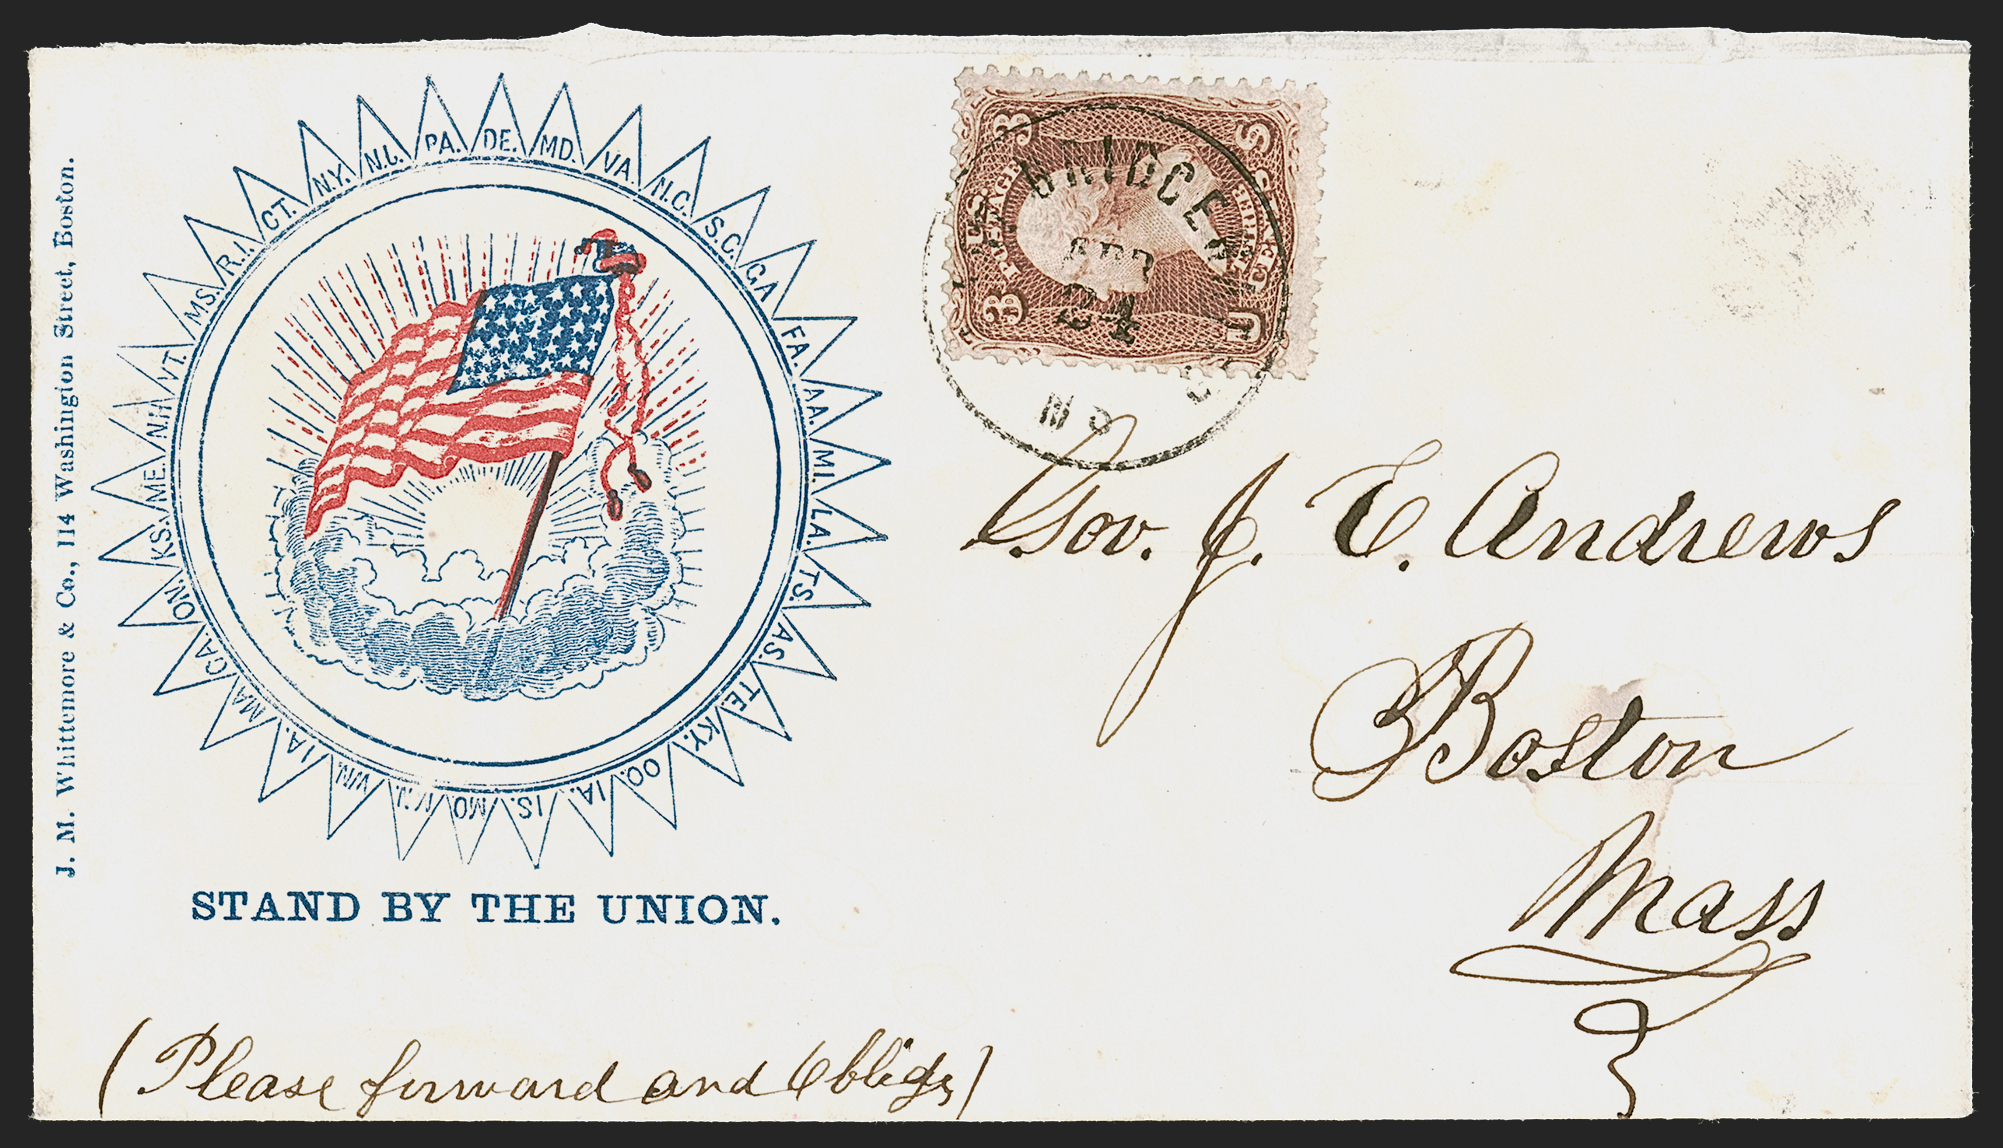 J. M. Whittemore & Co., 114 Washington Street, Boston.
ME. N.H. VT. MS. R.I. CT. N.Y. N.J. PA. DE. MD. VA. N.C. S.C. GA FA. AA. MI. LA T.S. AS. TE. KY. OO. IA. IS. MO WN. IA. MA CA ON. KS.
STAND BY THE UNION.
U.S. POSTAGE
3 3
THREE CENTS
U S
BRIDGE
APR
24
MD
Gov. J. E. Andrews
Boston
Mass
(Please forward and Oblige)